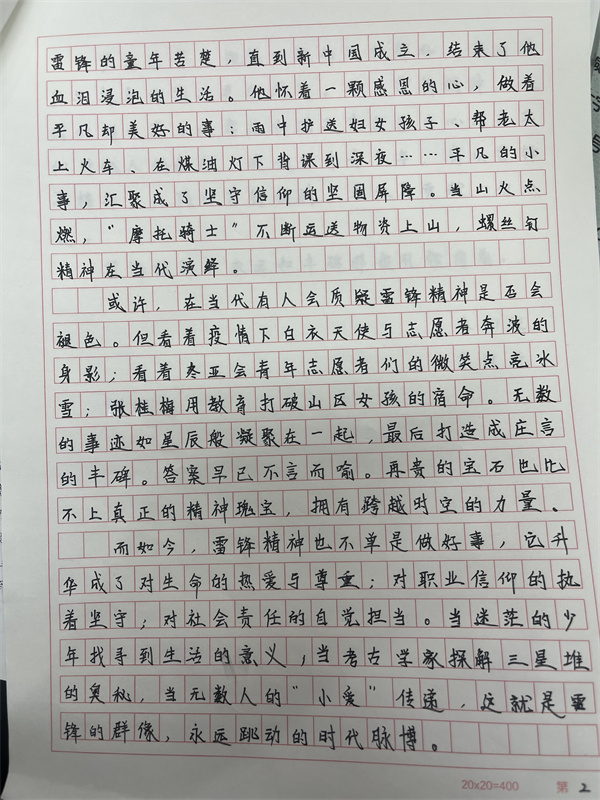 雷锋的童年苦楚，直到新中国成立.结束了他
血泪浸泡的生活。他怀着一颗感恩的心，做着
平凡却美好的事：雨中护送妇女孩子、帮老太
上火车、在煤油灯下背课到深夜……平凡的小
事，汇聚成了坚守信仰的坚固屏障。当山火点
燃，“摩托骑士”不断运送物资上山，螺丝钉
精神在当代演绎。
或许，在当代有人会质疑雷锋精神是否会
褪色。但看着疫情下白衣天使与志愿者奔波的
身影；看着冬亚会青年志愿者们的微笑点亮冰
雪；张桂梅用教育打破山区女孩的宿命。无数
的事迹如星辰般凝聚在一起，最后打造成庄言
的丰碑。答案早已不言而喻。再贵的宝石也比
不上真正的精神瑰宝，拥有跨越时空的力量。
而如今，雷锋精神也不单是做好事，它升
华成了对生命的热爱与尊重；对职业信仰的执
着坚守；对社会责任的自觉担当。当迷茫的少
年找寻到生活的意义，当考古学家探解三星堆
的奥秘，当无数人的“小爱”传递，这就是雷
锋的群像，永远跳动的时代脉博。
20x20=400 第 2